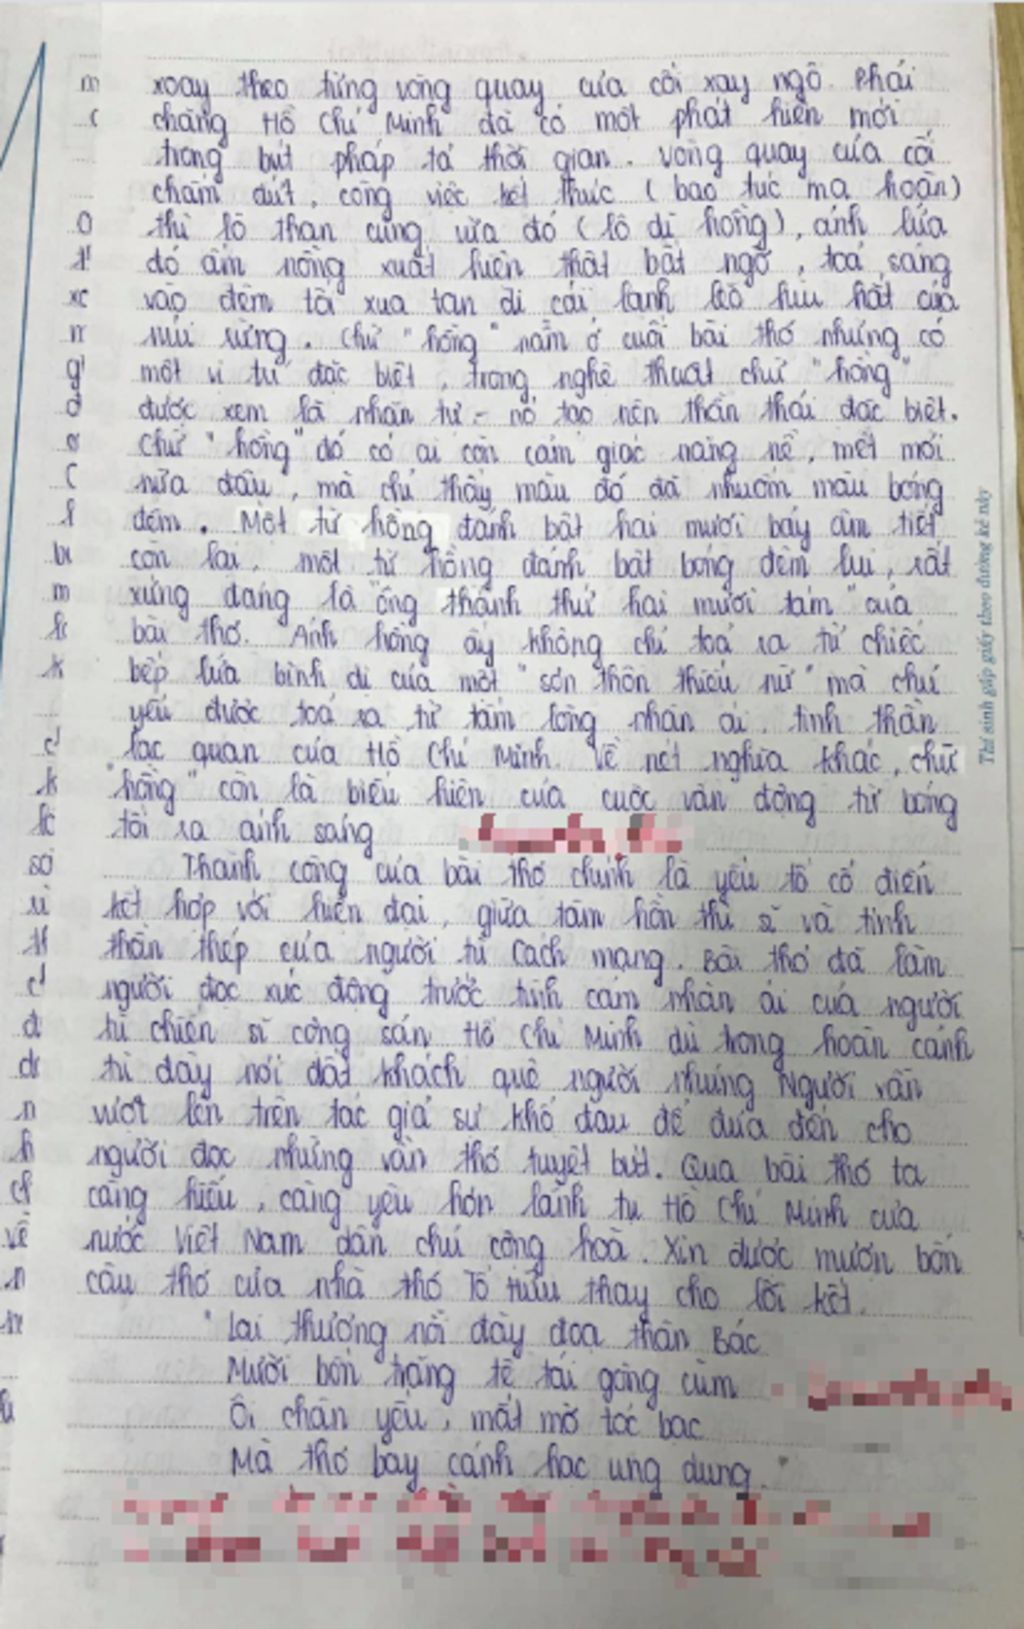 xoay theo từng vòng quay của cối xay ngô. Phải
chăng Hồ Chí Minh đã có một phát hiện mới
trong bút pháp tả thời gian. Vòng quay của cối
chấm dứt, công việc kết thúc (bao túc ma hoàn)
thì lò than cũng vừa đỏ (lô dĩ hồng), ánh lửa
đỏ ấm nồng xuất hiện thật bất ngờ, toả sáng
vào đêm tối xua tan đi cái lạnh lẽo hiu hắt của
núi rừng. Chữ "hồng" nằm ở cuối bài thơ nhưng có
một vị trí đặc biệt, trong nghệ thuật chữ "hồng"
được xem là nhãn tự - nó tạo nên thần thái đặc biệt.
Chữ "hồng" đó có ai còn cảm giác nặng nề, mệt mỏi
nữa đâu, mà chỉ thấy màu đỏ đã nhuốm màu bóng
đêm. Một từ hồng đánh bật hai mươi bảy âm tiết
còn lại, một từ hồng đánh bật bóng đêm lui, rất
xứng đáng là "ông thánh thứ hai mươi tám" của
bài thơ. Ánh hồng ấy không chỉ toả ra từ chiếc
bếp lửa bình dị của một "sơn thôn thiếu nữ" mà chủ
yếu được toả ra từ tấm lòng nhân ái, tinh thần
lạc quan của Hồ Chí Minh. Về nét nghĩa khác, chữ
"hồng" còn là biểu hiện của cuộc vận động từ bóng
tối ra ánh sáng
Thành công của bài thơ chính là yếu tố cổ điển
kết hợp với hiện đại, giữa tâm hồn thi sĩ và tinh
thần thép của người tù Cách mạng. Bài thơ đã làm
người đọc xúc động trước tình cảm nhân ái của người
tù chiến sĩ cộng sản Hồ Chí Minh dù trong hoàn cảnh
tù đày nơi đất khách quê người nhưng Người vẫn
vượt lên trên tác giả sự khổ đau để đưa đến cho
người đọc những vần thơ tuyệt bút. Qua bài thơ ta
càng hiểu, càng yêu hơn lãnh tụ Hồ Chí Minh của
nước Việt Nam dân chủ cộng hoà. Xin được mượn bốn
câu thơ của nhà thơ Tố Hữu thay cho lời kết.
"Lại thương nỗi đày đoạ thân Bác
Mười bốn trăng tê tái gông cùm
Ôi chân yếu, mắt mờ tóc bạc
Mà thơ bay cánh hạc ung dung."
Thí sinh gấp giấy theo đường kẻ này